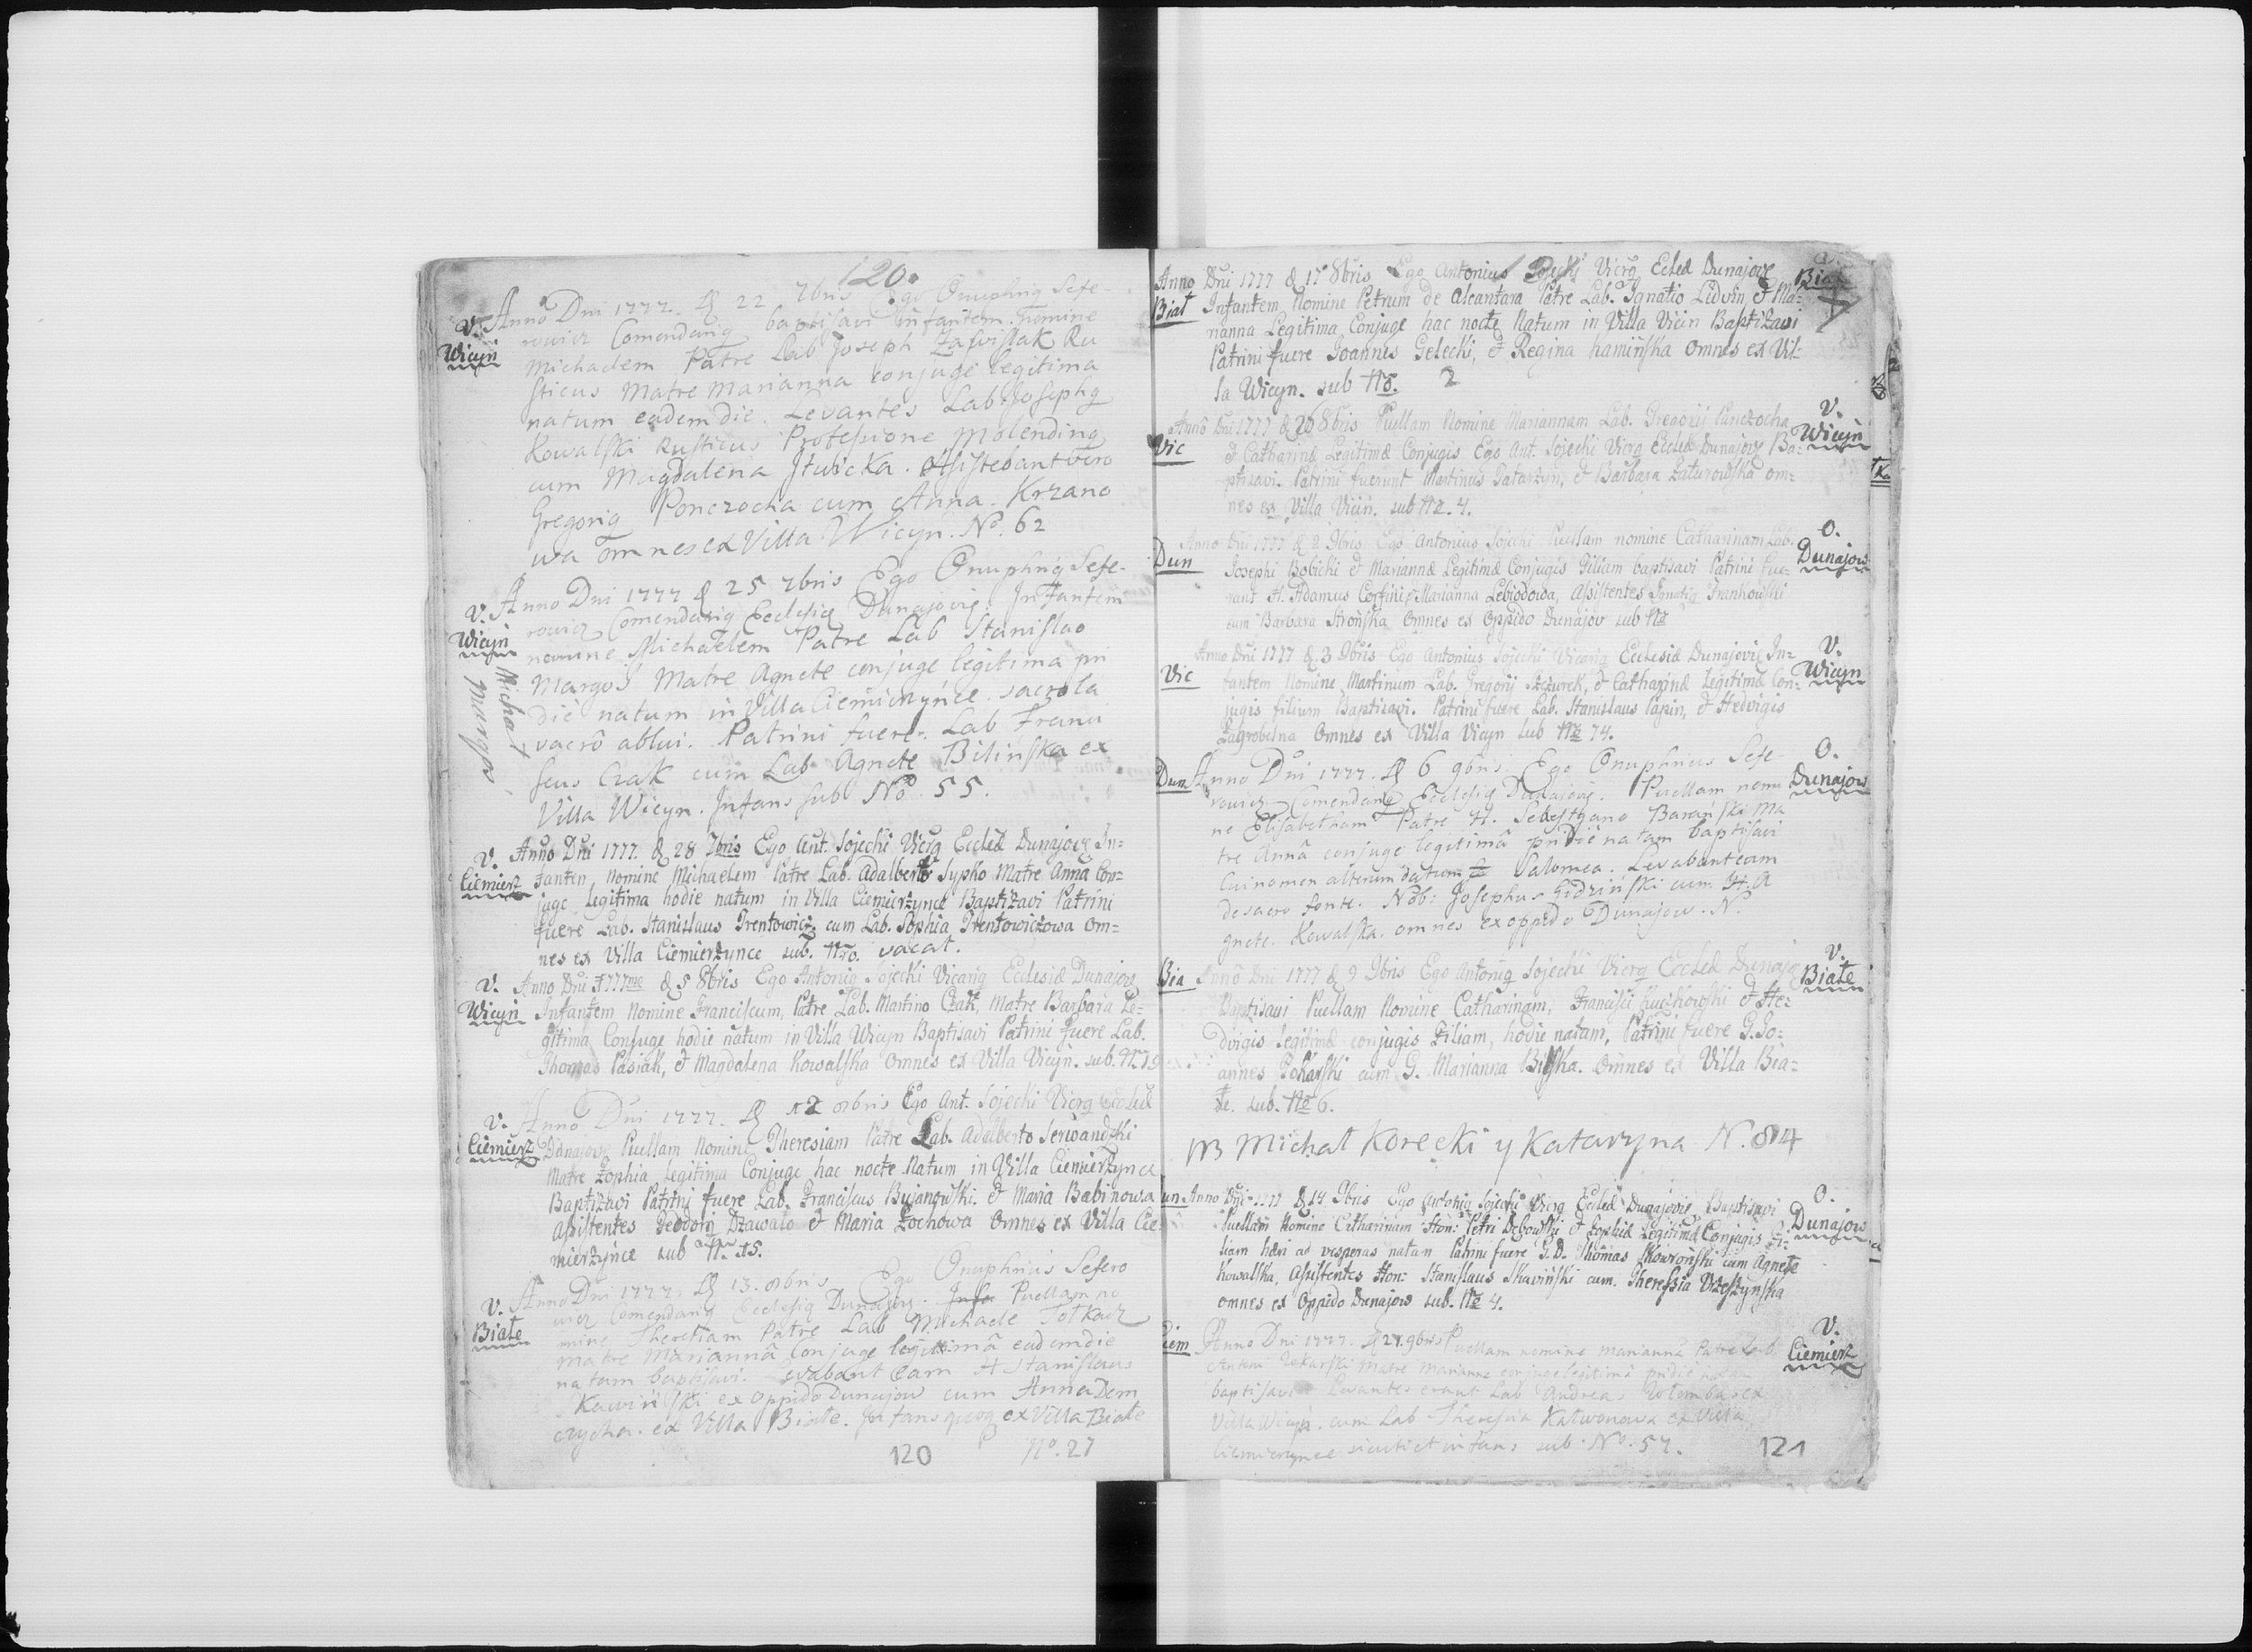 120.
V. Anno Dni 1777. d 22 7bris Ego Onuphrig Sefe-
Wicyń rowicz Comendarig baptisavi infantem nomine
Michaelem Patre Lab Joseph Ru
sticus Matre Marianna conjuge legitima
natum eadem die. Levantes Lab. Josephg
Kowalski Rusticus Professione Molending
cum Magdalena Stubcka. Assistebant vero
Gregorig Ponczocha cum Anna Krzano
wa omnes ex Villa Wicyn. No. 62
V. Anno Dni 1777 d 25 7bris Ego Onuphrig Sefe-
Wicyń rowicz Comendarig Ecclesię Dunajovię. Infantem
nomine Michaelem Patre Lab Stanislao
Margoś Matre Agnete conjuge legitima pri
Michał Margoś
die natum in Villa sacro la
vacrô ablui. Patrini fuere. Lab Franci
scus Czak cum Lab Agnete Bilińska ex
Villa Wicyn. Infans sub No. 55.
V. Anno Dni 1777. d 28 7bris Ego Ant. Sojecki Vicrg Eccleæ Dunajovę In-
Ciemierz fantem nomine Michaelem Patre Lab. Adalberto Sypko Matre Anna Con-
juge legitima hodie natum in Villa Ciemierzynce Baptizavi Patrini
fuere Lab. Stanislaus Trentowicz cum Lab. Sophia Trentowiczowa Om-
nes ex Villa Ciemierzynce sub. Nro. vacat.
V. Anno Dni 1777mo d 5 8bris Ego Antonig Sojecki Vicarig Ecclesiæ Dunajov
Wicyń Infantem Nomine Franciscum, Patre Lab. Martino Czak, Matre Barbara Le-
gitima Conjuge hodie natum in Villa Wicyn Baptisavi Patrini fuere Lab.
Thomas Pasiak, & Magdalena Kowalska Omnes ex Villa Vicyn. sub. N
V. Anno Dni 1777. d 12 8bris Ego Ant. Sojecki Vicrg Eccleæ
Ciemierz Dunajovę Puellam Nomine Theresiam Patre Lab. Adalberto
Matre Zophia legitima Conjuge hac nocte Natum in Villa Ciemierzynce
Baptizavi Patrini fuere Lab. Franciscus Bujanowski & Maria Babinowa
Assistentes Dzawało & Maria Zochowa Omnes ex Villa Cie
mierzynce sub Nr. 15.
V. Anno Dni 1777. d 13. 8bris Ego Onuphrius Sefero
Białe wicz Comendarig Ecclesię Dunajovę. Puellam no
mine Theresiam Patre Lab Michaele Totkacz
matre Mariannâ Conjuge legitimâ eadem die
natam baptisavi. Levabant eam H Stanislaus
Skawiński ex Oppido Dunajow cum Anna Dem
czycha. ex Villa Białe. Infans quoq ex Villa Białe
No. 27
120
Anno Dni 1777 d 17 8bris Ego Antonius Sojecki Vicrg Eccleæ Dunajovę
Biał Infantem Nomine Petrum de Alcantara Patre Lab. Ignatio Lidvin & Ma-
rianna Legitima Conjuge hac nocte Natum in Villa Vicin Baptizavi
Patrini fuere Joannes Gelecki, & Regina Kamińska Omnes ex Vil-
la Wicyn. sub No. 2
Anno Dni 1777 d 26 8bris Puellam Nomine Mariannam Lab. Gregorij Panczocha V.
Vic & Catharinæ Legitimæ Conjugis Ego Ant. Sojecki Vicrg Eccleæ Dunajovę Ba- Wicyń
ptizavi. Patrini fuerunt Martinus Tatarzyn, & Barbara Zaturowska om-
nes ex Villa Vicin. sub No. 4.
Anno Dni 1777 d 2 9bris Ego Antonius Sojecki Puellam nomine Catharinam Lab. O.
Dun Josephi Bobicki & Mariannæ Legitimæ Conjugis Filiam baptisavi Patrini fue- Dunajow
runt H. Adamus & Marianna Lebiodowa, Assistentes Ignatig Frankowski
cum Barbara Strońska Omnes ex Oppido Dunajov sub No
Anno Dni 1777 d. 3 9bris Ego Antonius Sojecki Vicarig Ecclesiæ Dunajovię In- V.
Vic fantem Nomine Martinum Lab. Gregorij Szczurek, & Catharinæ Legitimæ Con- Wicyn
jugis filium Baptisavi. Patrini fuere Lab. Stanislaus Papin, & Hedvigis
Zagrobelna Omnes ex Villa Vicyn sub No 74.
Dun Anno Dni 1777. d 6 9bris. Ego Onuphrius Sefe- O.
rowicz Comendarig Ecclesię Dunajovię. Puellam nomi Dunajow
ne Elisabetham Patre H. Sebestyano Barański Ma
tre Annâ conjuge legitimâ pridie natam baptisavi
Cui nomen alterum datum Salomea. Levabant eam
de sacro fonte. Nob: Josephus Gidziński cum H. A
gnete. Kowalska. omnes ex oppido Dunajow. N.
Bia Anno Dni 1777 d 9 9bris Ego Antonig Sojecki Vicrg Eccleæ Dunajo V.
Baptisavi Puellam Nomine Catharinam, Francisci Kuczkowski & He- Białe
dvigis legitimæ conjugis Filiam, hodie natam, Patrini fuere G. Jo-
annes Pokarski cum G. Marianna. Omnes ex Villa Bia-
łe. sub. No 6.
NB Michał Korecki y Katarzyna N. 84
Anno Dni 1777 d 14 9bris Ego Antonig Sojecki Vicrg Eccleæ Dunajovię Baptisavi O.
Puellam Nomine Catharinam Hon: Petri Dębowski & Zophiæ Legitimæ Conjugis Fi- Dunajow
liam heri ad vesperas natam Patrini fuere G.D. Thomas Skowroński cum Agnete
Kowalska, Assistentes Hon: Stanislaus Skawiński cum. Theressia
omnes ex Oppido Dunajow sub. No 4.
Ciem Anno Dni 1777. d 21. 9bris Puellam nomine Marianna Patre Lab. V.
Antoni Matre Marianna conjuge legitimâ pridie natam Ciemierz
baptisavi Levantes erant Lab Andreas ex
Villa Wicyń. cum Lab Theresia ex Villa
Ciemierzynce sicuti et infans sub No. 57.
121